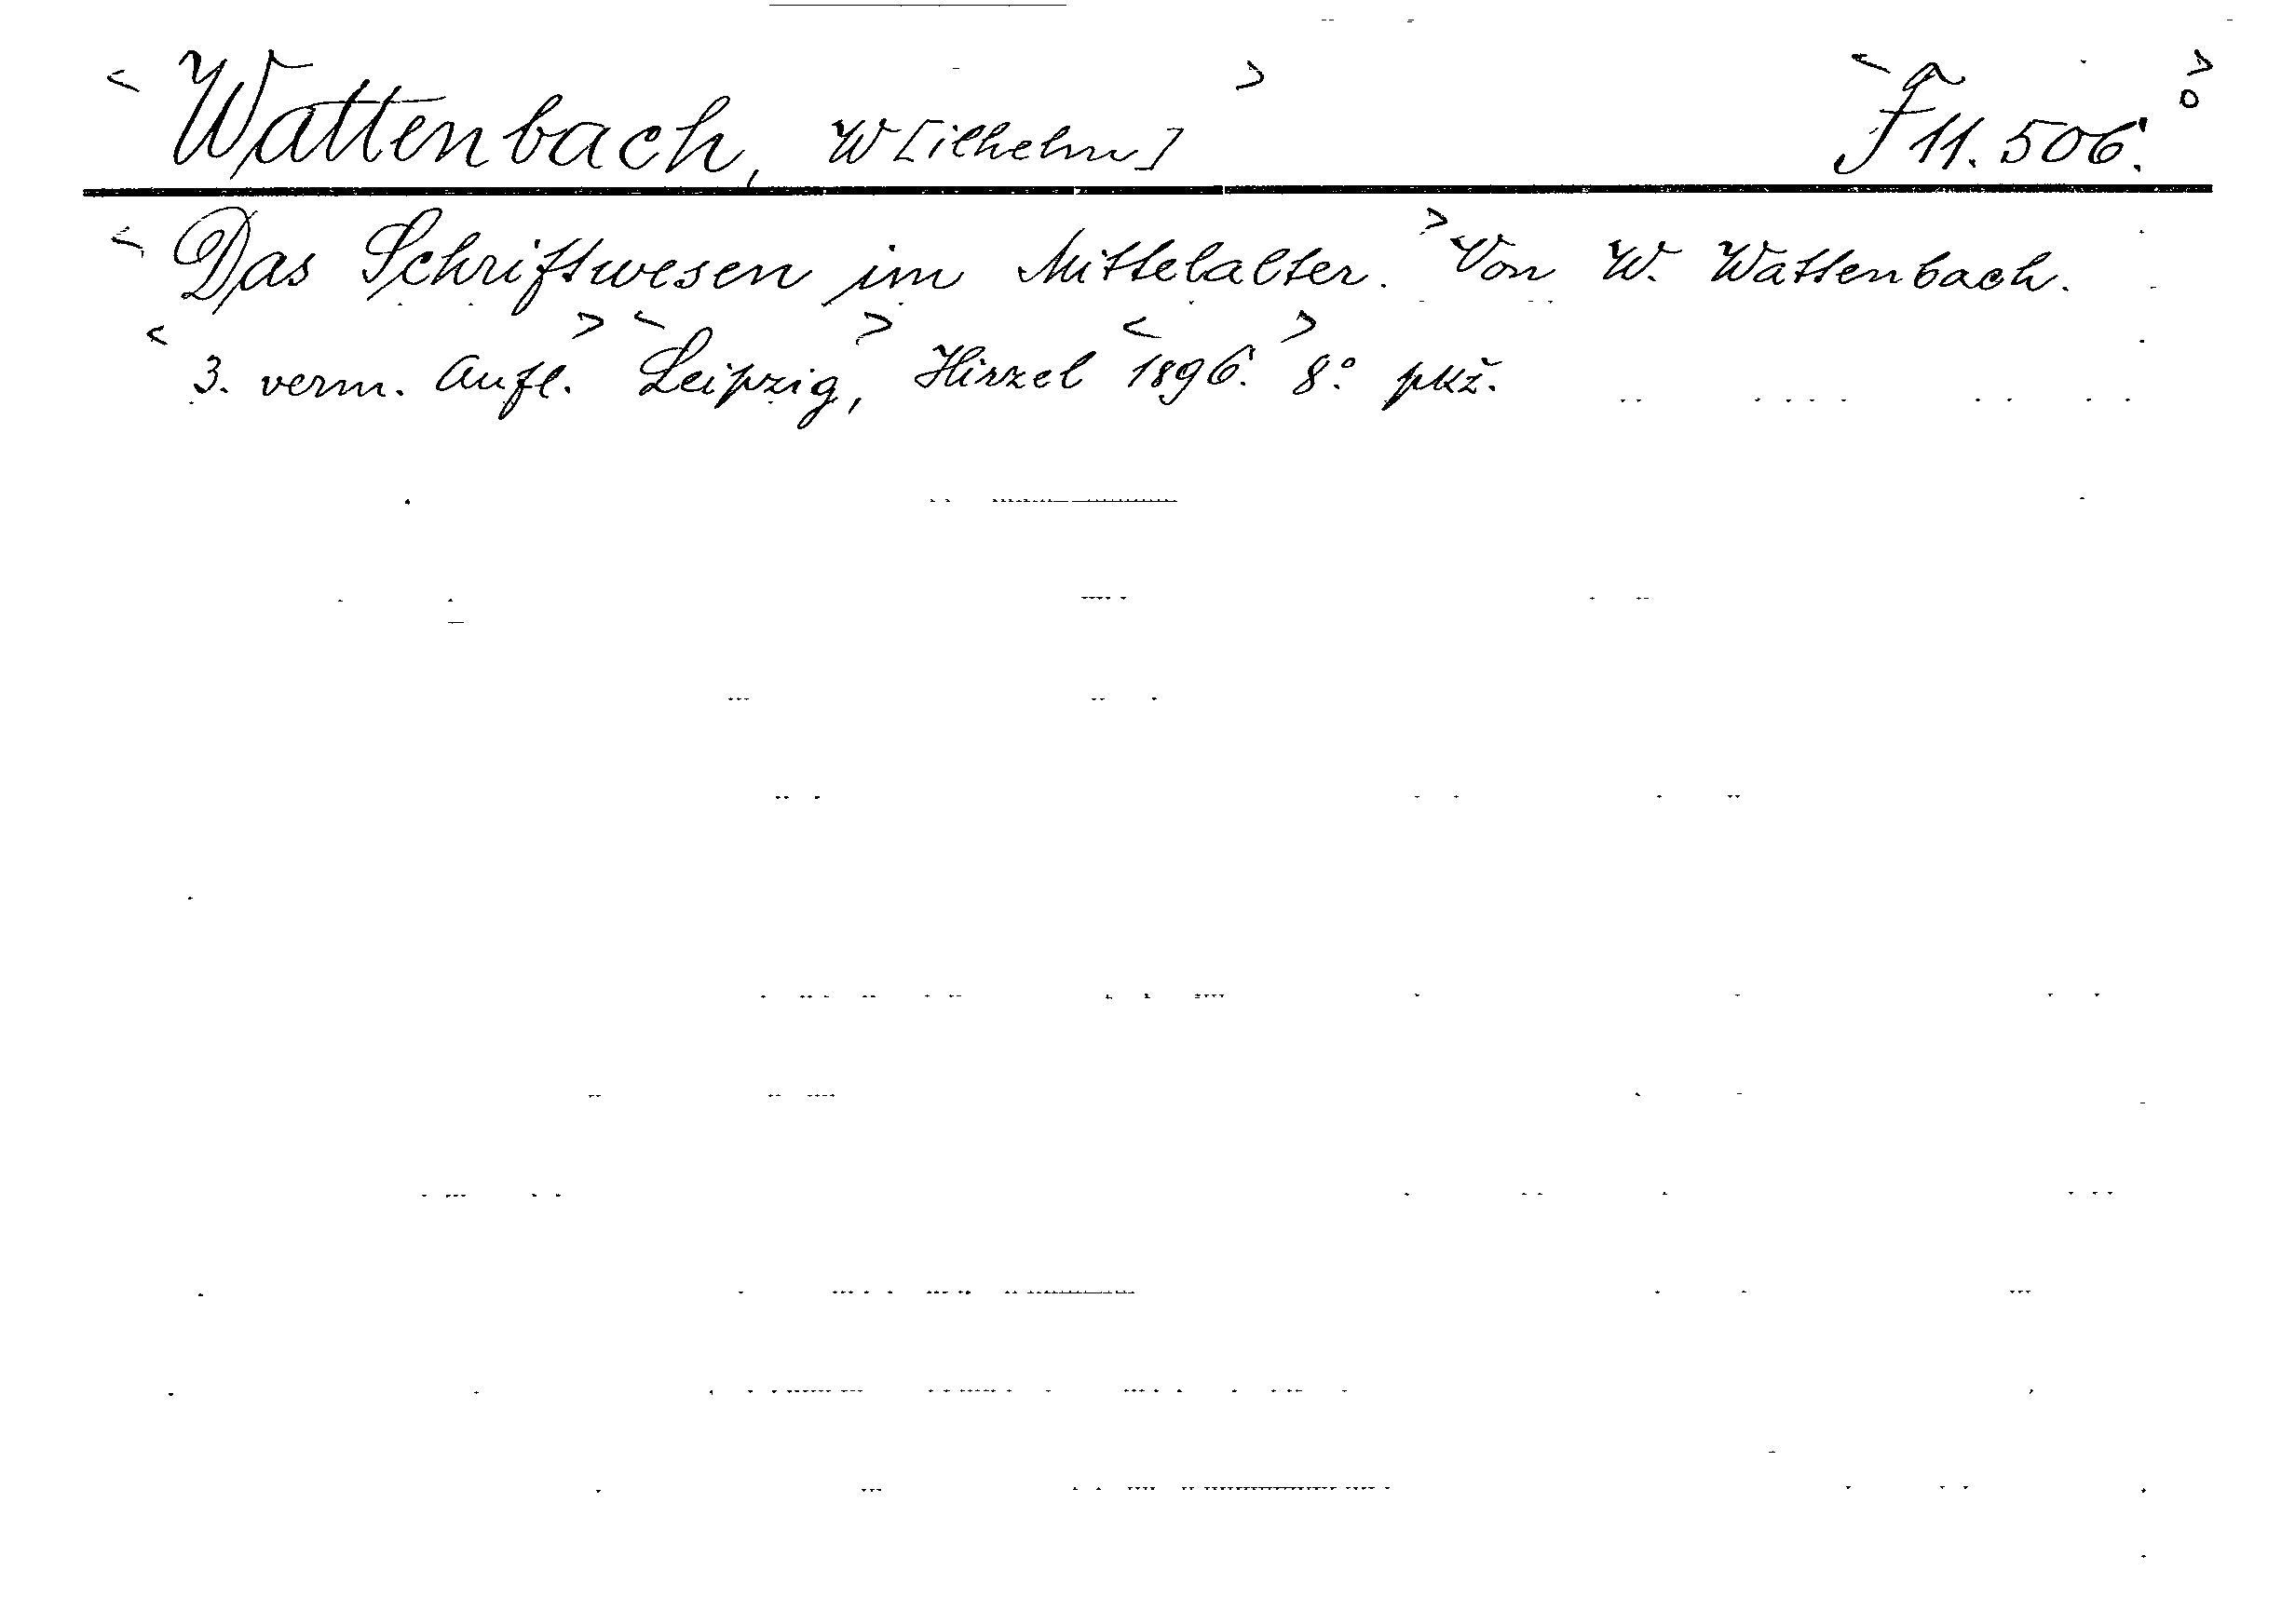 < Wattenbach, W[ilhelm] > < F 11.506. >
< Das Schriftwesen im Mittelalter. > Von W. Wattenbach.
< 3. verm. Aufl. > < Leipzig, > Hirzel < 1896. > 8° pkž.